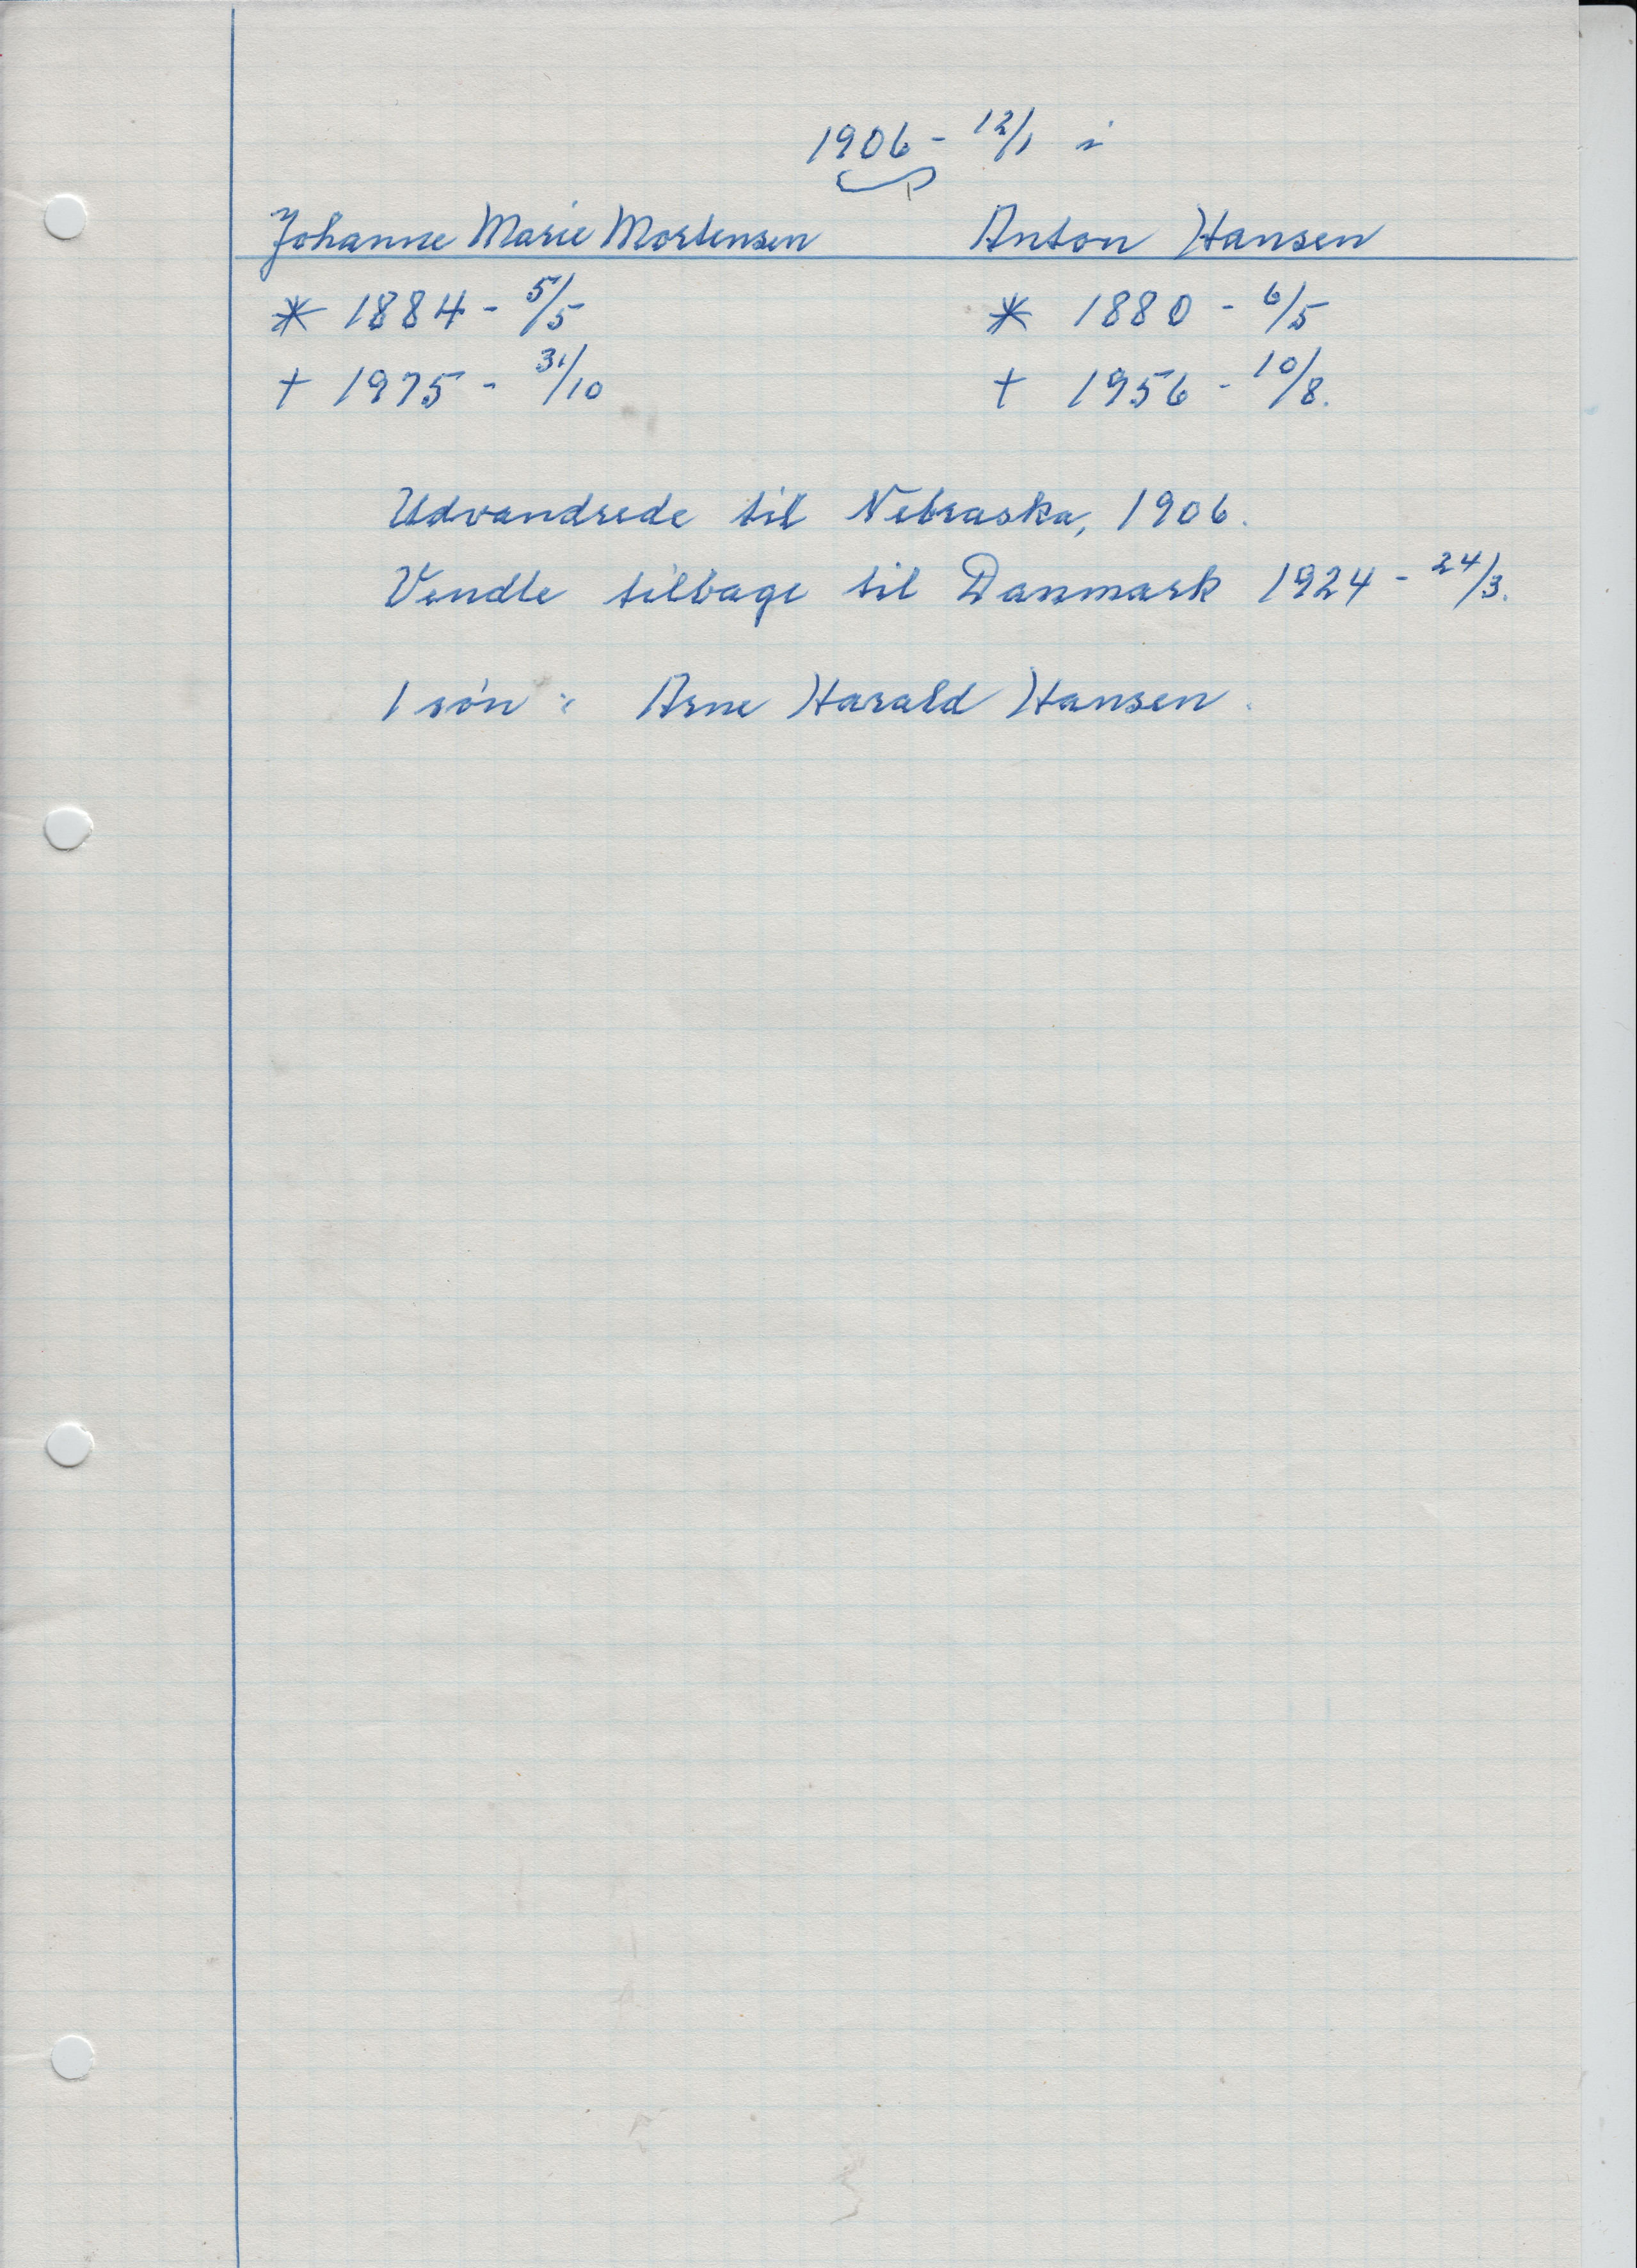 1906 - 12/1 i
Johanne Marie Mortensen Anton Hansen
* 1884 - 5/5 * 1880 - 6/5
† 1975 - 31/10 † 1956 - 10/8.
Udvandrede til Nebraska, 1906.
Vendte tilbage til Danmark 1924 - 24/3.
1 søn : Arne Harald Hansen.